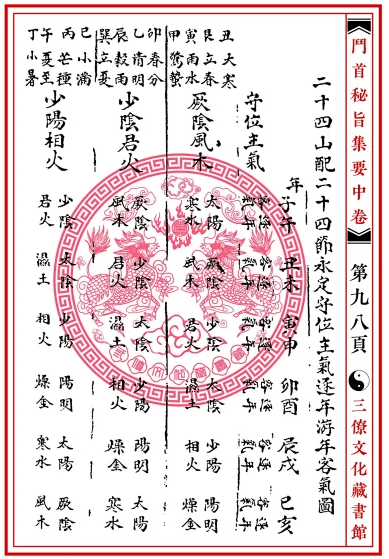 鬥首秘旨集要中卷
第九八頁
三僚文化藏書館
二十四山配二十四節永定守位主氣逐年游年客氣圖
守位主氣
年
子午 逐年客氣
丑未 逐年客氣
寅申 逐年客氣
卯酉 逐年客氣
辰戌 逐年客氣
巳亥 逐年客氣
丑大寒
艮立春
寅雨水
甲驚蟄
厥陰風木
太陽寒水
厥陰風木
少陰君火
太陰濕土
少陽相火
陽明燥金
卯春分
乙清明
辰穀雨
巽立夏
少陰君火
厥陰風木
少陰君火
太陰濕土
少陽相火
陽明燥金
太陽寒水
巳小滿
丙芒種
午夏至
丁小暑
少陽相火
少陰君火
太陰濕土
少陽相火
陽明燥金
太陽寒水
厥陰風木